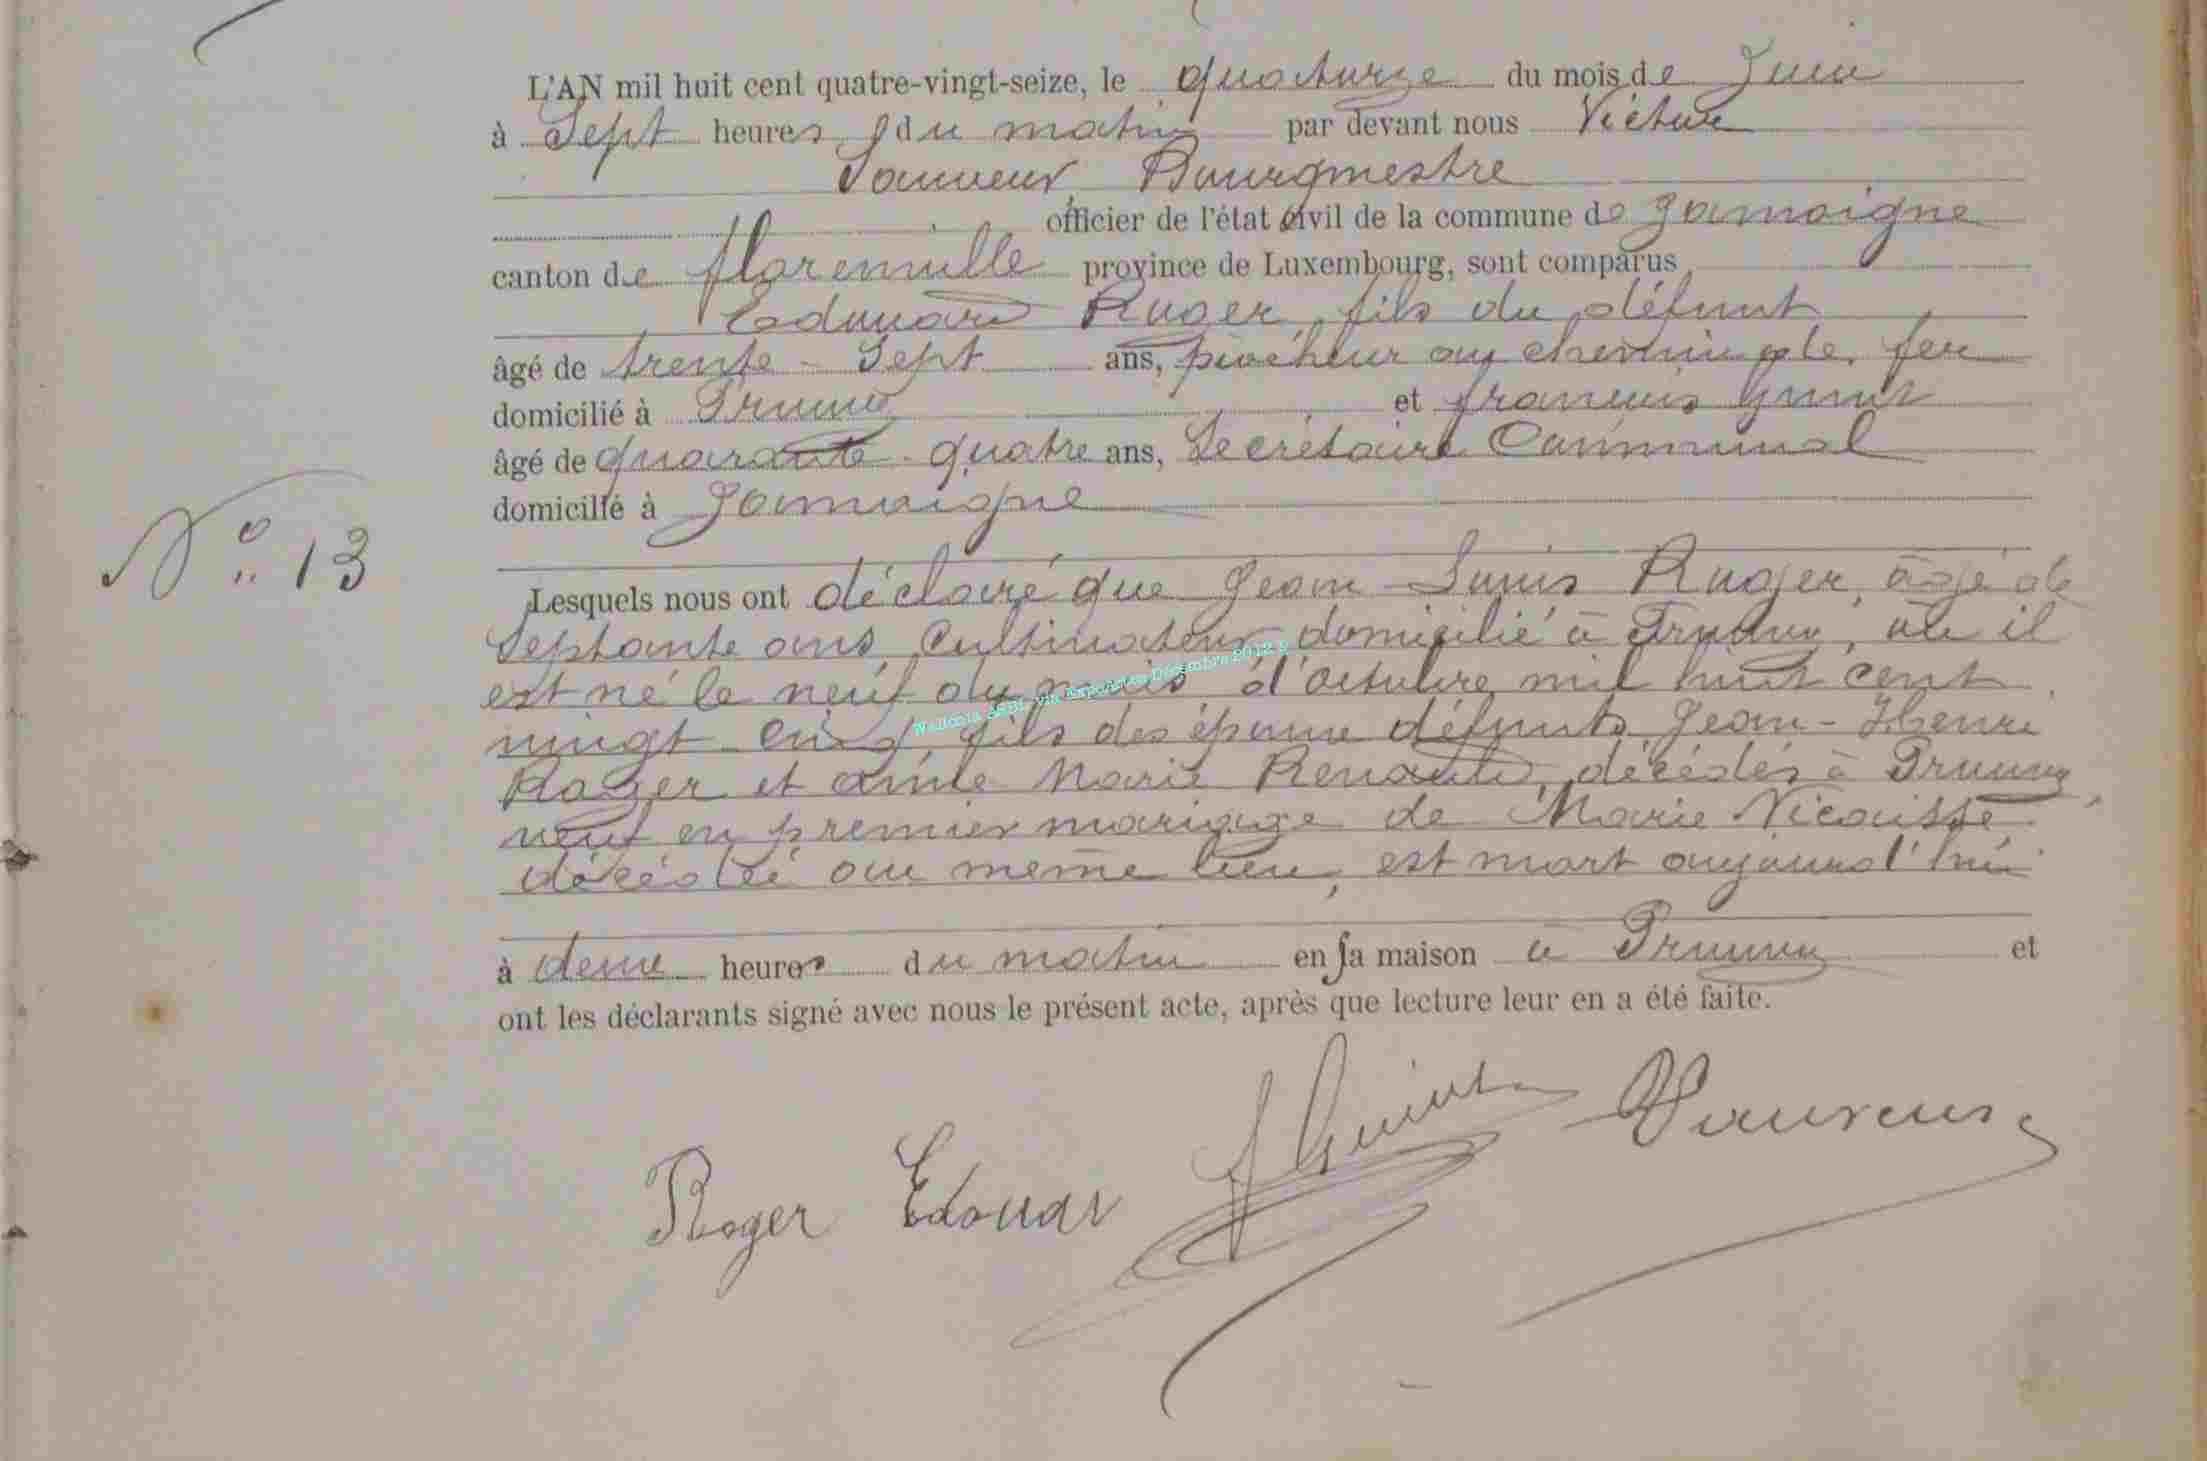 L'AN mil huit cent quatre-vingt-seize, le quatorze du mois de Juin
à Sept heures du matin par devant nous Victor
Sauveur, Bourgmestre
officier de l'état civil de la commune de Jamoigne
canton de florenville province de Luxembourg, sont comparus
Edouard Roger, fils du défunt
âgé de trente-Sept ans, piocheur au chemin de fer
domicilié à Prouvy et francois Guint
âgé de quarante quatre ans, Secrétaire Communal
domicilié à Jamoigne
N° 13
Lesquels nous ont déclaré que Jean Louis Roger, âgé de
Septante ans, Cultivateur domicilié à Prouvy, où il
est né le neuf du mois d'octobre mil huit cent
vingt cinq, fils des époux défunts Jean-Henri
Roger et anne Marie Renauld, décédés à Prouvy,
veuf en premier mariage de Marie Nicaisse
décédée au même lieu, est mort aujourd'hui
à deux heures du matin en sa maison à Prouvy et
ont les déclarants signé avec nous le présent acte, après que lecture leur en a été faite.
Roger Edouar f Guint Sauveur
Wallonia ASBL via Décembre 2012